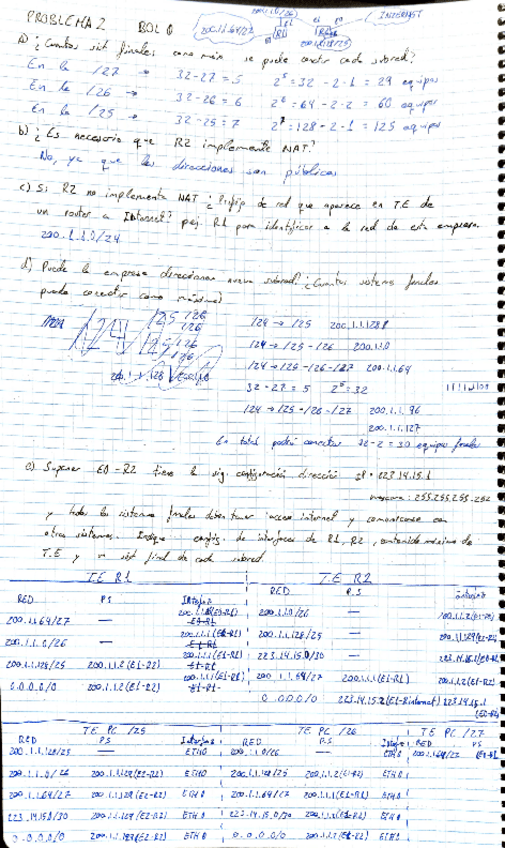 PROBLEMA 2 BOL 6
200.1.1.64/27 R1 INTERNET
a) ¿Cuantos sist finales como máx se puede conectar cada subred?
En la /27 → 32-27 = 5 2^5 = 32 - 2 - 1 = 29 equipos
En la /26 → 32-26 = 6 2^6 = 64 - 2 - 2 = 60 equipos
En la /25 → 32-25 = 7 2^7 = 128 - 2 - 1 = 125 equipos
b) ¿Es necesario que R2 implemente NAT?
No, ya que las direcciones son públicas
c) Si R2 no implementa NAT ¿Prefijo de red que aparece en T.E de
un router a Internet? pej. R1 para identificar a la red de esta empresa.
200.1.1.0/24
d) Puede la empresa direccionar nueva subred? ¿Cuantos sistemas finales
puede conectar como máximo?
/24 → /25 200.1.1.128
/24 → /25 - /26 200.1.1.0
/24 → /25 - /26 - /27 200.1.1.64
32 - 27 = 5 2^5 = 32
/24 → /25 - /26 - /27 200.1.1.96
200.1.1.127
En total podrá conectar 32-2 = 30 equipos finales
e) Suponer E0-R2 tiene la sig. configuración dirección IP = 223.14.15.1
mascara: 255.255.255.252
y todos los sistemas finales deben tener acceso internet y comunicarse con
otros sistemas. Indique config. de interfaces de R1, R2, contenido máximo de
T.E y un sist final de cada subred
T.E R1 T.E R2
RED P.S Interfaz RED P.S Interfaz
200.1.1.64/27 — 200.1.1.0/26 —
200.1.1.0/26 — 200.1.1.1 (E1-R1) 200.1.1.128/25 — 200.1.1.129 (E2-R2)
200.1.1.128/25 200.1.1.2 (E1-R2) 200.1.1.1 (E1-R1) 223.14.15.0/30 — 223.14.15.1 (E0-R2)
0.0.0.0/0 200.1.1.2 (E1-R2) 200.1.1.1 (E1-R1) 200.1.1.64/27 200.1.1.1 (E1-R1) 200.1.1.2 (E1-R2)
0.0.0.0/0 223.14.15.2 (E1-Rinternet) 223.14.15.1 (E0-R2)
TE PC /25 TE PC /26 TE PC /27
RED P.S Interfaz RED P.S Interfaz RED PS
200.1.1.128/25 — ETH0 200.1.1.0/26 — ETH0 200.1.1.64/27
200.1.1.0/26 200.1.1.129 (E2-R2) ETH0 200.1.1.128/25 200.1.1.2 (E1-R2) ETH0
200.1.1.64/27 200.1.1.129 (E2-R2) ETH0 200.1.1.64/27 200.1.1.1 (E1-R1) ETH0
223.14.15.0/30 200.1.1.129 (E2-R2) ETH0 223.14.15.0/30 200.1.1.2 (E1-R2) ETH0
0.0.0.0/0 200.1.1.129 (E2-R2) ETH0 0.0.0.0/0 200.1.1.2 (E1-R2) ETH0